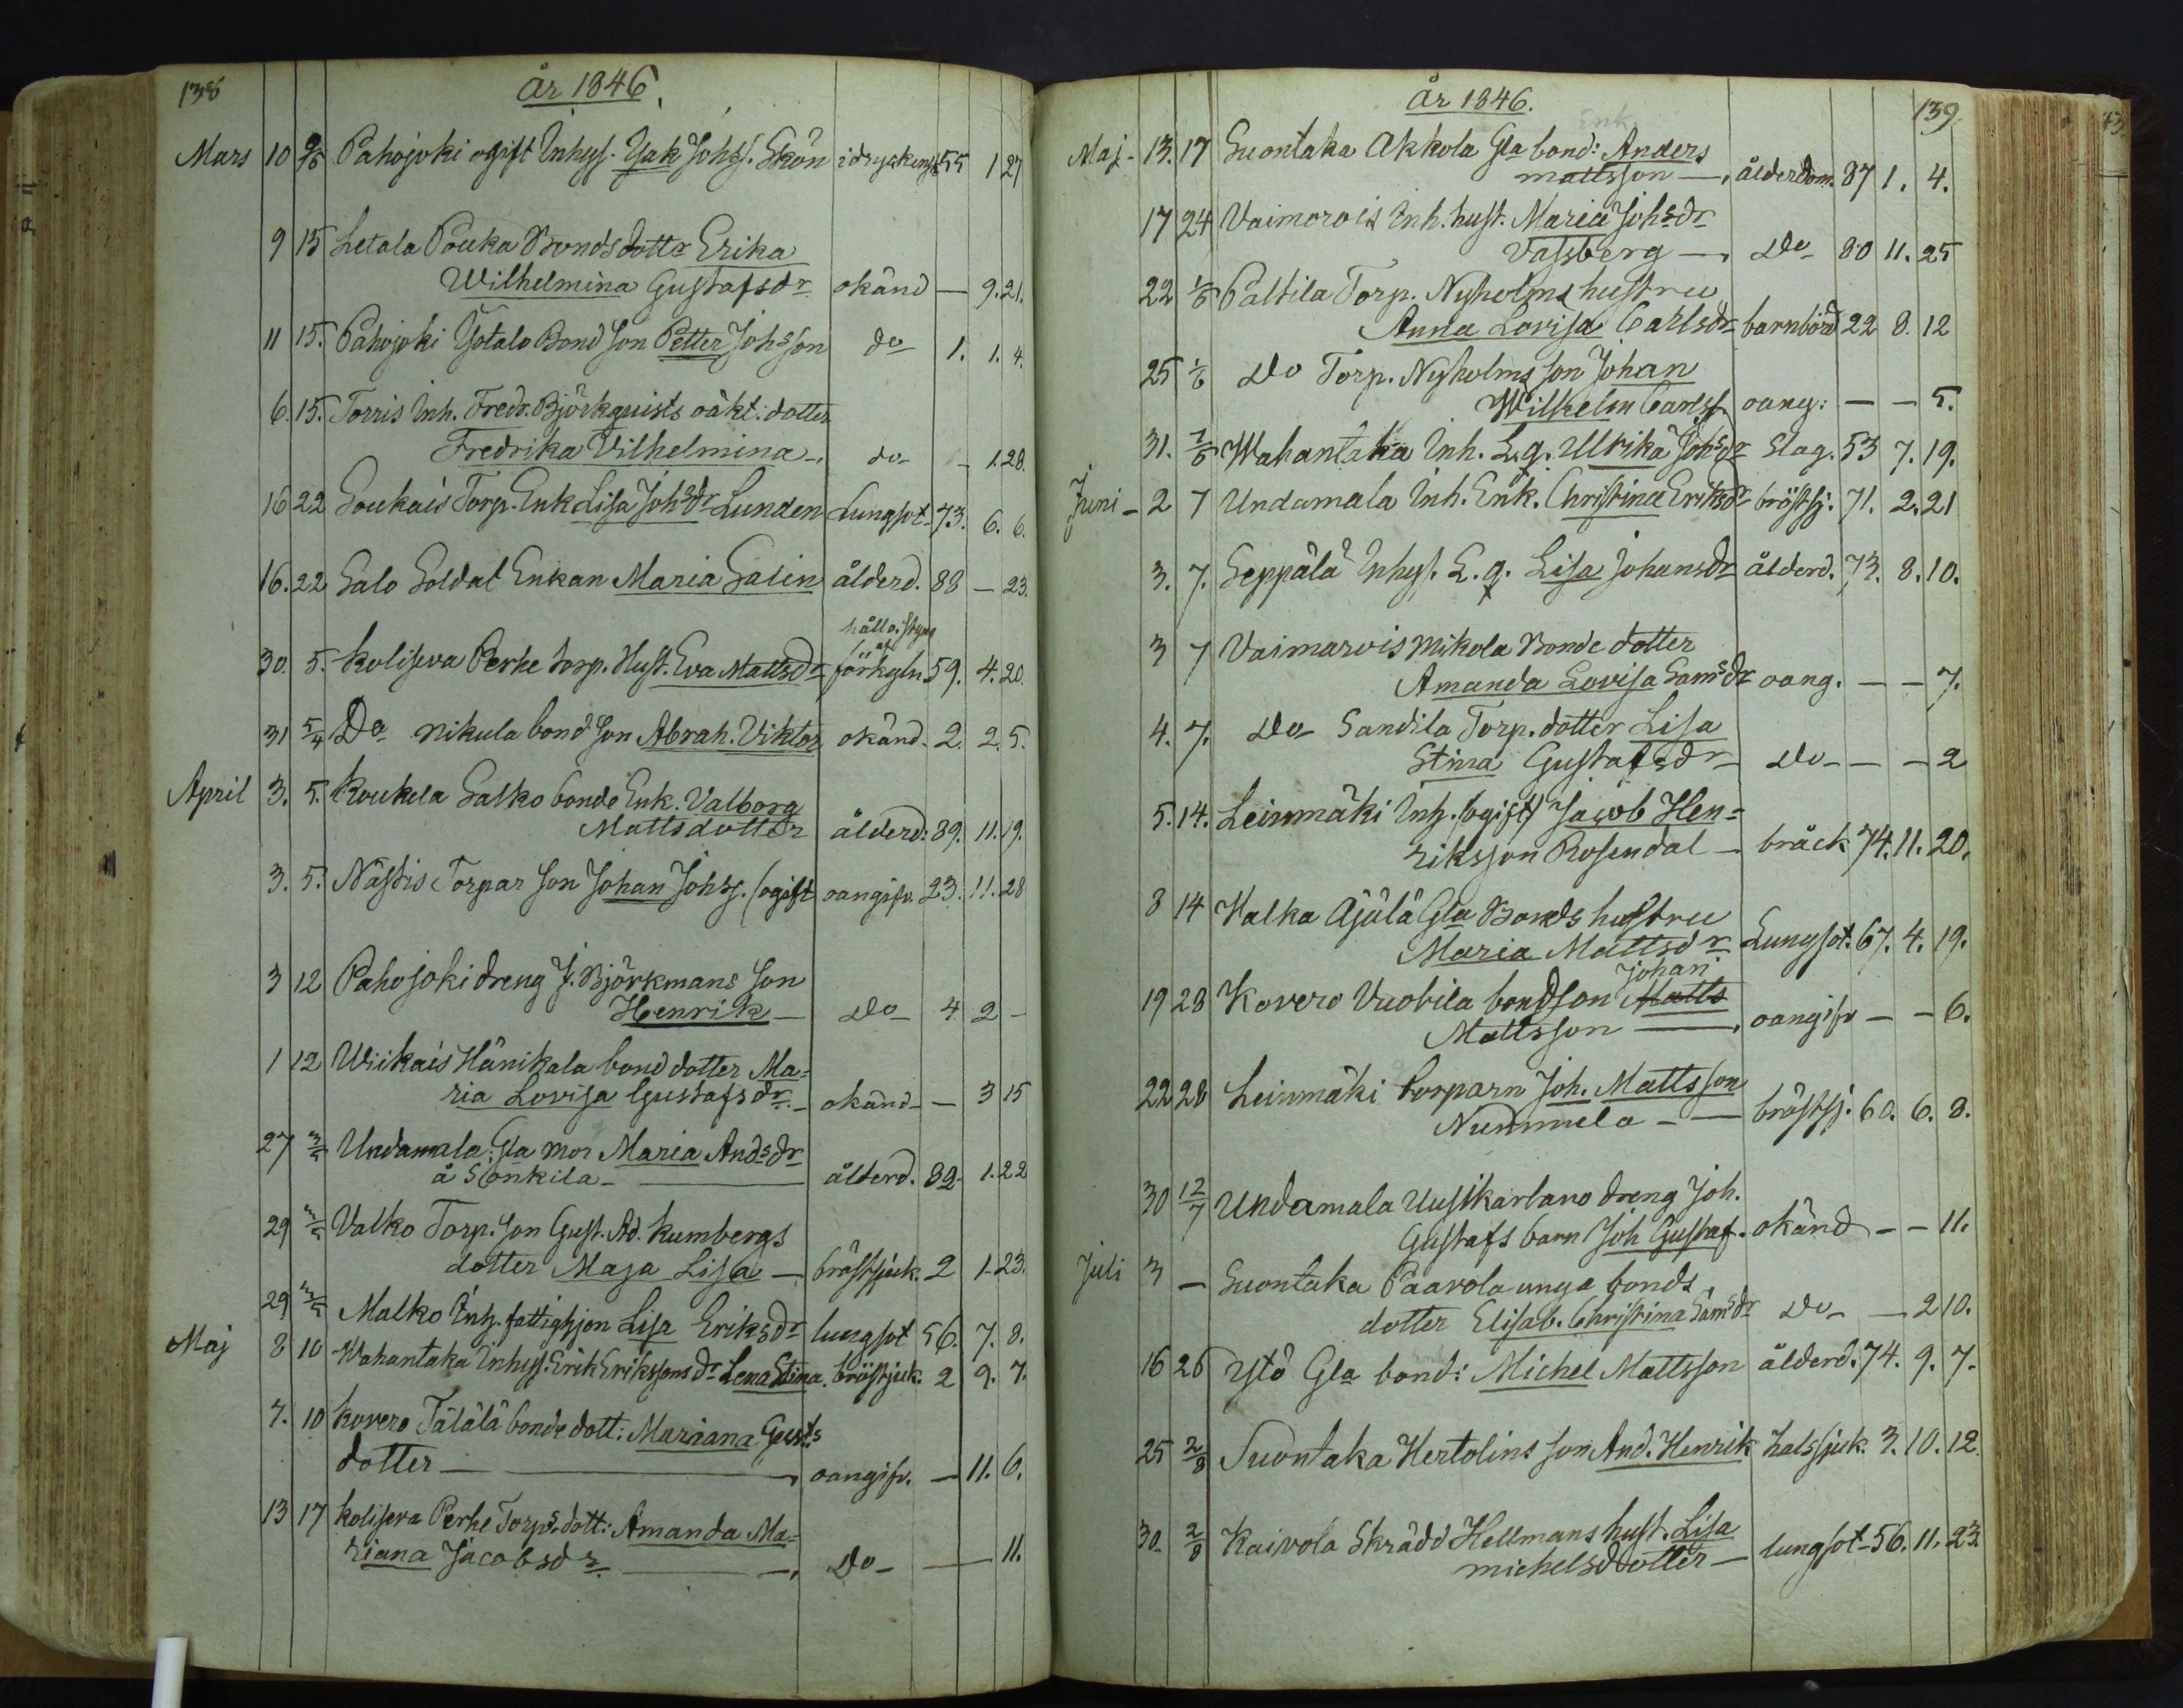 138
År 1846.
Mars 10 9/5 Pahojoki ogift Inhys. Jak Johs. Skön 55 1 27
9 15 Letala Pouka Bonds dottr Erika
Wilhelmina Gustafsdr okänd — 9. 21.
11 15. Pahojoki Yotalo Bond Son Petter Johsson do 1. 1. 4.
6. 15. Torris Inh. Fredr. Björkquists oäkt: dotter
Fredrika Vilhelmina do - 1. 28.
16 22 Soukais Torp. Enk Lisa Johsdr Lunden Lungsot 73. 6. 6.
16. 22 Salo Soldat Enkan Maria Salin ålderd. 88 — 23.
håll o. styng
af
30. 5. Koliseva Perhe torp. Hust. Eva Mattsdr förkyln. 59. 4. 20.
31 5/4 Do Nikula bond Son Abrah. Viktor okänd. 2. 2. 5.
April 3. 5. Koukela Salko bonde Enk. Valborg
Mattsdotter ålderd: 89. 11. 19.
3. 5. Nästis Torpar Son Johan Johss. (ogift oangifv. 23. 11. 28
3 12 Pahojoki dreng J. Björkmans Son
Henrik — Do 4 2 -
1 12 Wiikais Hänikala bond dotter Ma=
ria Lovisa Gustafsdr. okänd — 3 15
27 3/5 Undamala Gla mor Maria Andsdr
å Sönkila — ålderd. 82. 1. 22
29 3/5 Valko Torp. Son Gust. Ad. Kumbergs
dotter Maja Lisa — bröstsjuk. 2 1. 23.
29 3/5 Malko Inh. fattighjon Lisa Eriksdr lungsot 56. 7. 8.
Maj 8 10 Wahantaka Inhys. Erik Erikssons dr Lena Stina. bröstsjuk. 2 9. 7.
7. 10 Kovero Tälälä bonde dott: Mariana Gusts
dotter — oangifv. — 11. 6.
13 17 Koliseva Perhe Torps. dott: Amanda Ma=
riana Jacobsdr. — Do — 11.
År 1846.
139.
Enk
Maj - 13. 17 Suontaka Akkola Gla bond: Anders
mattsson — ålderdom. 87 1. 4.
17 24 Vaimorois Inh. hust. Maria Johsdr
Vassberg — Do 80 11. 25
22 1/6 Paltila Torp. Nyholms hustru
Anna Lovisa Carlsdr barnbörd 22 8. 12
25 1/6 Do Torp. Nyholms Son Johan
Wilhelm Carlss. oang: — — 5.
31. 7/6 Wahantaka Inh. L.q. Ullrika Johsdr Slag. 53 7. 19.
Juni - 2 7 Undamala Inh. Enk. Christina Eriksdr bröstsj: 71. 2. 21
3. 7. Seppälä Inhys. L.q. Lisa Johansdr ålderd. 73. 8. 10.
3 7 Vaimarois Mikola Bonde dotter
Amanda Lovisa Samsdr oang. — — 7.
4. 7. Do Sandila Torp. dotter Lisa
Stina Gustafsdr Do — — 2
5. 14. Leinmäki Inh. (ogift) Jacob Hen=
riksson Rosendal — bråck 74. 11. 20.
8 14 Walka Äjälä Gla Bonds hustru
Maria Mattsdr Lungsot. 67. 4. 19.
Johan
19 28 Kovero Vuobila bondson Matts
Mattsson — oangifv — — 6.
22 28 Leinmäki torparn Joh. Mattsson
Nummela — bröstsj. 60. 6. 8.
30 12/7 Undamala Uusikartano dreng Joh.
Gustafs barn Joh Gustaf. okänd — — 11.
Juli 3 — Suontaka Paavola unga bonds
dotter Elisab. Christina Samsdr Do — 2 10.
16 26 Ylö Gla bond: Michel Mattsson ålderd. 74. 9. 7.
25 2/8 Suontaka Hertolins Son And. Henrik halssjuk. 3. 10. 12.
30 2/8 Kaivola Skrädd Hellmans hust. Lisa
michelsdotter — lungsot 56. 11. 23